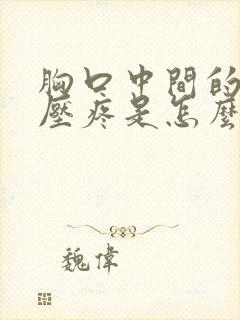 胸口中間的
壓疼是怎麼
魏偉